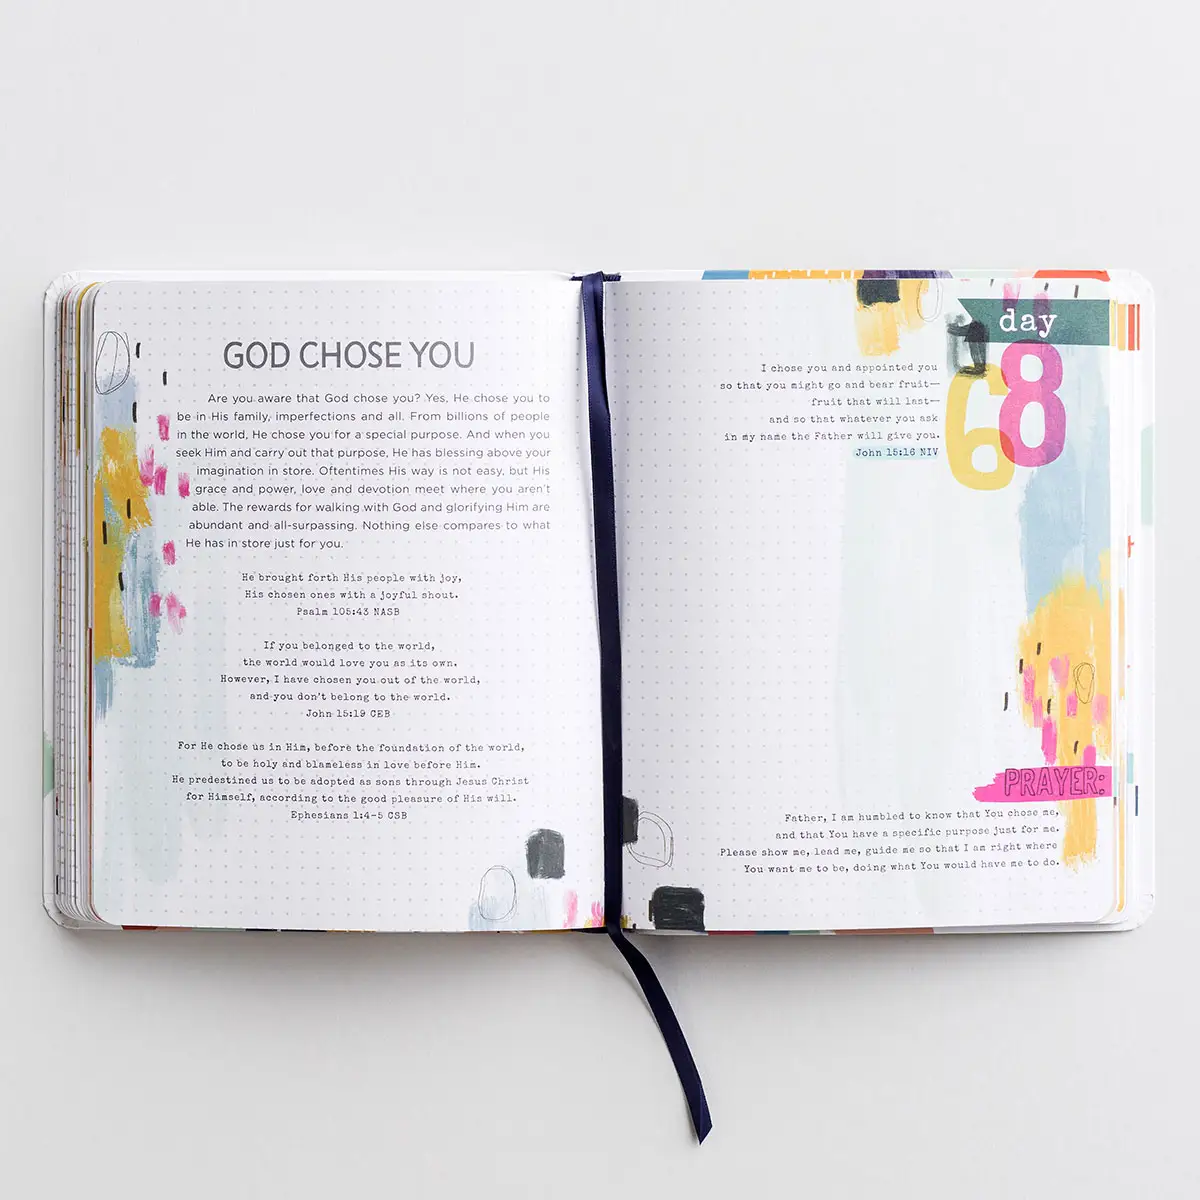 GOD CHOSE YOU
Are you aware that God chose you? Yes, He chose you to
be in His family, imperfections and all. From billions of people
in the world, He chose you for a special purpose. And when you
seek Him and carry out that purpose, He has blessing above your
imagination in store. Oftentimes His way is not easy, but His
grace and power, love and devotion meet where you aren't
able. The rewards for walking with God and glorifying Him are
abundant and all-surpassing. Nothing else compares to what
He has in store just for you.
He brought forth His people with joy,
His chosen ones with a joyful shout.
Psalm 105:43 NASB
If you belonged to the world,
the world would love you as its own.
However, I have chosen you out of the world,
and you don't belong to the world.
John 15:19 CEB
For He chose us in Him, before the foundation of the world,
to be holy and blameless in love before Him.
He predestined us to be adopted as sons through Jesus Christ
for Himself, according to the good pleasure of His will.
Ephesians 1:4-5 CSB
day
68
I chose you and appointed you
so that you might go and bear fruit—
fruit that will last—
and so that whatever you ask
in my name the Father will give you.
John 15:16 NIV
PRAYER:
Father, I am humbled to know that You chose me,
and that You have a specific purpose just for me.
Please show me, lead me, guide me so that I am right where
You want me to be, doing what You would have me to do.